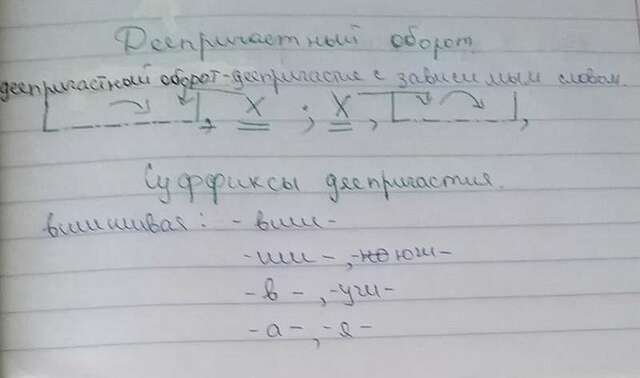 Деепричастный оборот.
деепричастный оборот-деепричастие с зависимым словом.
[ ], X ; X, [ ],
Суффиксы деепричастия.
вшишивая: - вши -
- ши - , - ючи -
- в - , - учи -
- а - , - я -